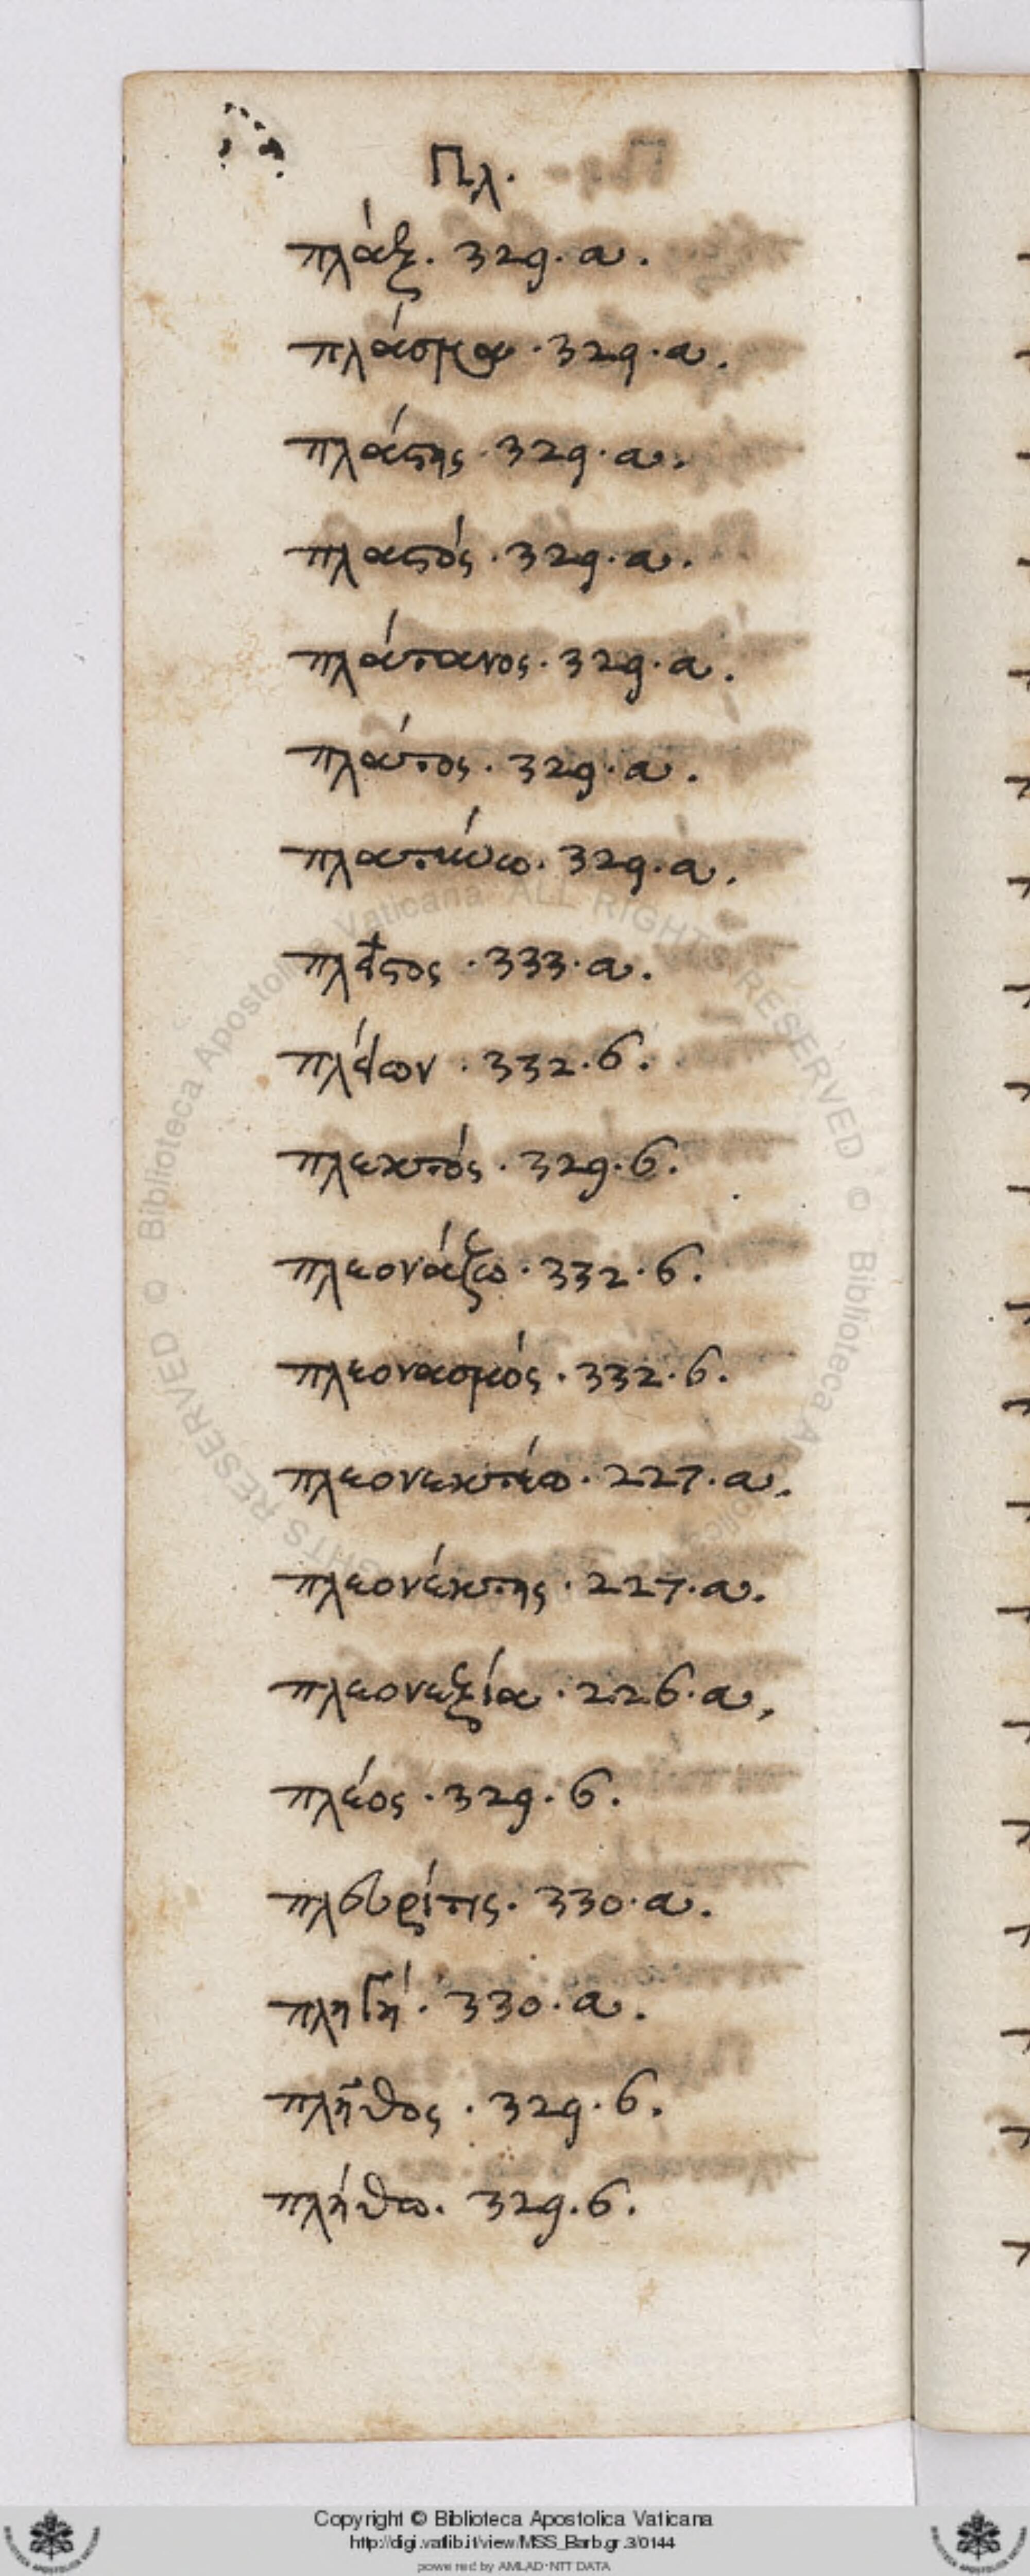 Πλ.
πλάξ. 329. a.
πλάσμα. 329. a.
πλάστης. 329. a.
πλαστός. 329. a.
πλάτανος. 329. a.
πλάτος. 329. a.
329. a.
πλεῖστος. 333. a.
πλείων. 332. b.
πλεκτός. 329. b.
πλεονάζω. 332. b.
πλεονασμός. 332. b.
πλεονεκτέω. 227. a.
πλεονέκτης. 227. a.
πλεονεξία. 226. a.
πλέος. 329. b.
πλευρίτις. 330. a.
πληγή. 330. a.
πλῆθος. 329. b.
πλήθω. 329. b.
© Biblioteca Apostolica Vaticana ALL RIGHTS RESERVED © Biblioteca Apostolica RIGHTS RESERVED
Copyright © Biblioteca Apostolica Vaticana
http://digi.vatlib.it/view/MSS_Barb.gr.3/0144
powered by AMLAD-NTT DATA